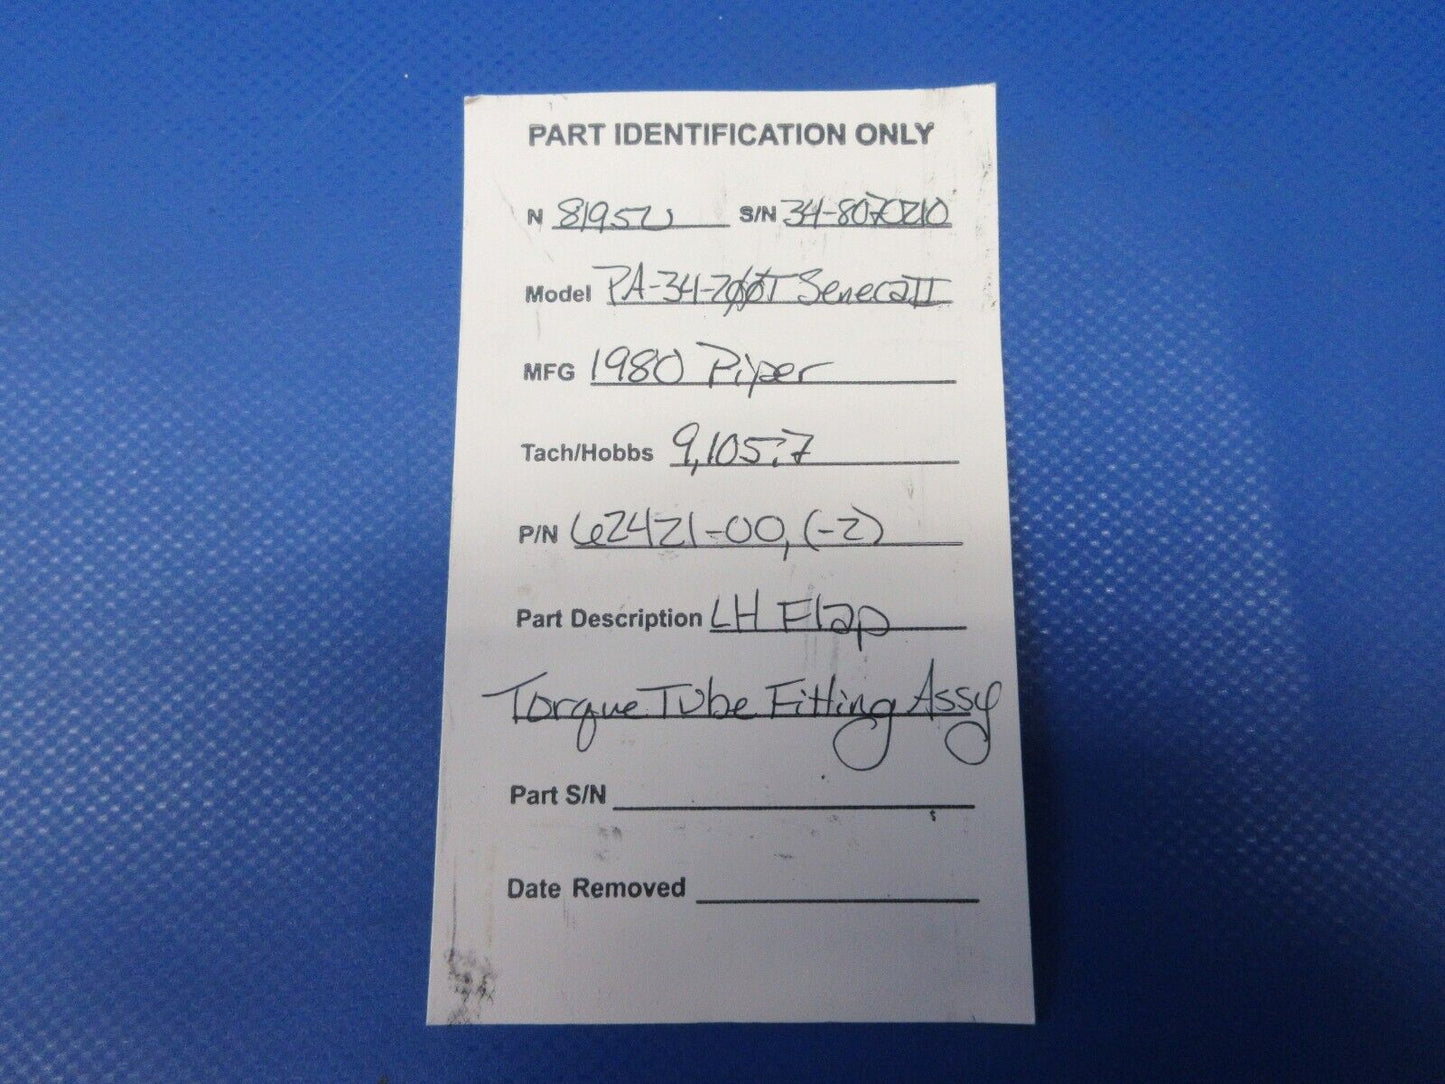 PART IDENTIFICATION ONLY
N 8195U S/N 34-8070210
Model PA-34-200T Seneca II
MFG 1980 Piper
Tach/Hobbs 9,105.7
P/N 62421-00, (-2)
Part Description LH Flap
Torque Tube Fitting Assy
Part S/N
Date Removed